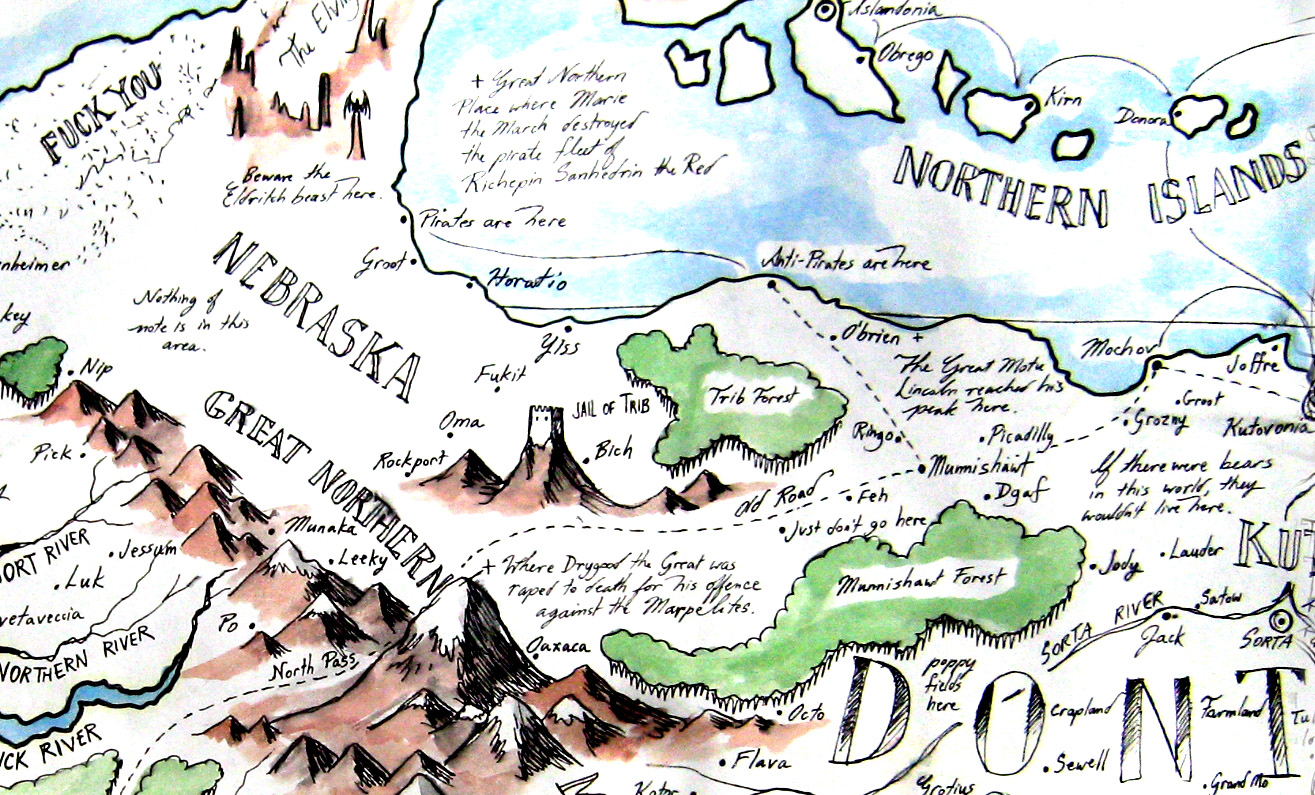 The Elvin
FUCK YOU
Beware the
Eldritch beast here.
+ Great Northern
Place where Marie
the March destroyed
the pirate fleet of
Richepin Sanhedrin the Red
Islandonia
Obrego
Kirn
Donora
NORTHERN ISLANDS
Pirates are here
Anti-Pirates are here
nheimer
NEBRASKA
Groot
Horatio
Nothing of
note is in this
area.
key
Nip
Yiss
Fukit
O'brien +
The Great Motu
Lincoln reached his
peak here.
Mochov
Joffre
Groot
Grozny
Kutovonia
Trib Forest
JAIL OF TRIB
Oma
Bich
Rockport
Ringo
Picadilly
Munnishawt
GREAT NORTHERN
Pick
Old Road
Feh
Dgaf
Just don't go here
If there were bears
in this world, they
wouldn't live here.
KUT
Munaka
Leeky
Jessum
ORT RIVER
Luk
vetaveccia
NORTHERN RIVER
Po
North Pass
+ Where Drygood the Great was
raped to death for his offence
against the Marpelites.
Oaxaca
Munnishawt Forest
Jody
Lauder
SORTA RIVER
Satow
Jack
SORTA
DONT
poppy
fields
here
Crapland
Farmland
Tu
UCK RIVER
Octo
Flava
Sewell
Grand Mo
Kotor
Grotius